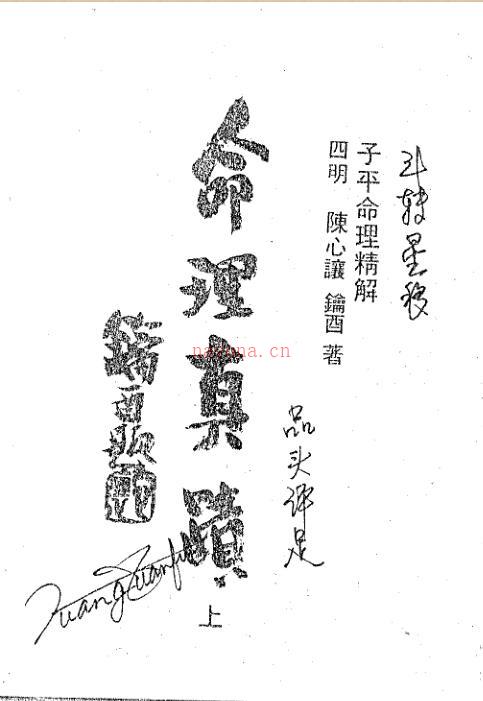 斗转星移
子平命理精解
四明 陳心讓 鑰酉 著
品头评足
命理真蹟
上
nayona.cn